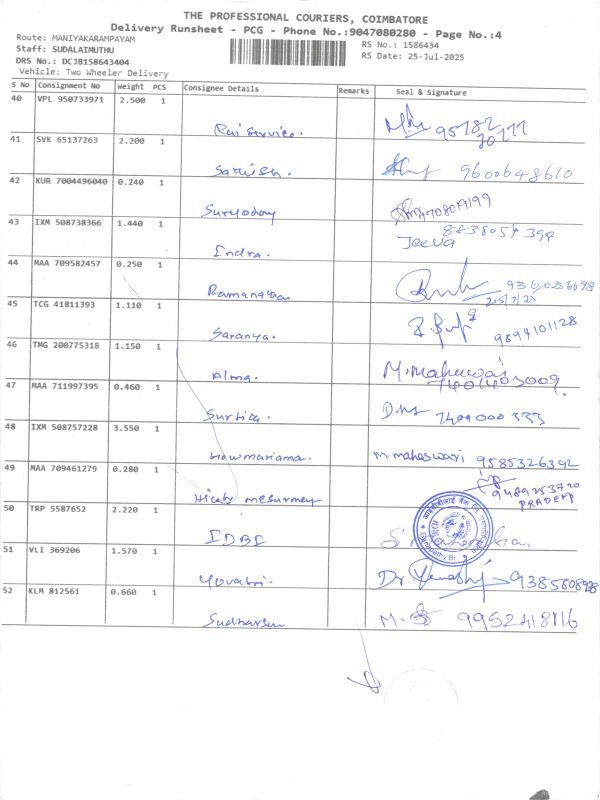 THE PROFESSIONAL COURIERS, COIMBATORE
Delivery Runsheet - PCG - Phone No.:9047080280 - Page No.:4
Route: MANIYAKARAMPAYAM
RS No.: 1586434
Staff: SUDALAIMUTHU
RS Date: 25-Jul-2025
DRS No.: DCJB158643404
Vehicle: Two Wheeler Delivery
S No Consignment No Weight PCS Consignee Details Remarks Seal & Signature
40 VPL 950733971 2.500 1
Rai Service. 95782
70177
41 SVK 65137263 2.200 1
Sathish. 9600648610
42 KUR 7004496040 0.240 1
Suryoday
43 IXM 508738366 1.440 1
Indra. Jeeva 8838054398
44 MAA 709582457 0.250 1
Ramanathan
25/7/25
45 TCG 41811393 1.110 1
Saranya. 9894101128
46 TMG 200775318 1.150 1
Alma. M. Maheswari
7401403009.
47 MAA 711997395 0.460 1
48 IXM 508757228 3.550 1
m. maheswari 9585326392
49 MAA 709461279 0.280 1
9489253720
PRADEEP
50 TRP 5587652 2.220 1
IDBI
Ganapathy Br.
51 VLI 369206 1.570 1
Dr
52 KLM 812561 0.660 1
Sudharsun M. 9952418116